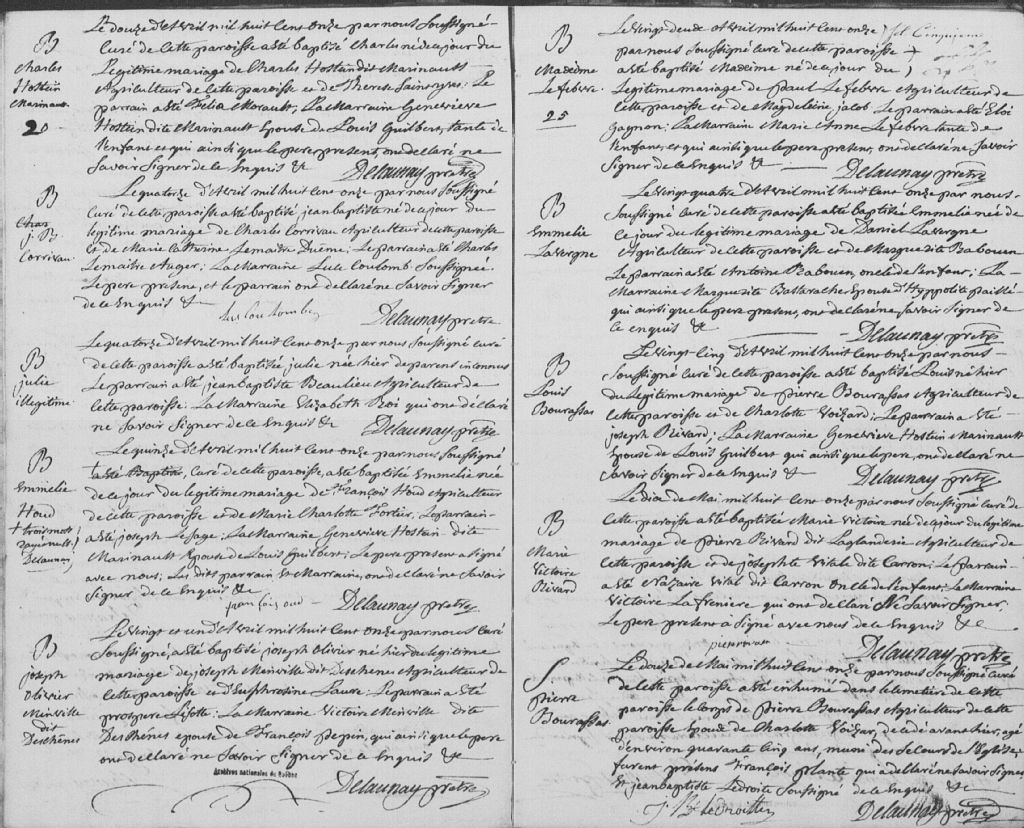 B
Charles
Hostein
Marinault
20
Le douze d'Avril mil huit Cent onze par nous Soussigné
Curé de Cette paroisse a été baptizé Charles né de ce jour du
Legitime mariage de Charles Hostein dit Marinault
Agriculteur de Cette paroisse et de Therese Le
parrain a été Felix Morault, La Marraine Genevieve
Hostein dite Marinault Epouse de Louis Guilbert, tante de
l'enfant et qui ainsi que le pere present, ont declaré ne
Savoir Signer de ce Enquis &
Delaunay ptre
B
j. B.
Corrivau
Le quatorze d'Avril mil huit Cent onze par nous Soussigné
curé de Cette paroisse a été baptisé jean baptiste né de ce jour du
legitime mariage de Charles Corrivau Agriculteur de cette paroisse
et de Marie Catherine Lemaitre Le parrain a été Charles
Lemaitre Auger; La Marraine Luce Coulomb Soussignée.
Le pere present, et le parrain ont declaré ne Savoir Signer
de ce Enquis &
Delaunay pretre
B
julie
illegitime
Le quatorze d'Avril mil huit Cent onze par nous Soussigné curé
de Cette paroisse a été baptisée julie née hier de parens inconnus
Le parrain a été jean baptiste Beaulieu Agriculteur de
Cette paroisse: La Marraine Elizabeth Roi qui ont declaré
ne Savoir Signer de ce Enquis &
Delaunay pretre
B
Emmelie
Houd
+ trois mots
Delaunay
Le quinze d'Avril mil huit Cent onze par nous Soussigné
a été Baptisé, curé de Cette paroisse, a été baptisée Emmelie née
de ce jour du legitime mariage de François Houd Agriculteur
de Cette paroisse et de Marie Charlotte Fortier, Le parrain
a été joseph Lesage; La Marraine Genevieve Hostein dite
Marinault Epouse de Louis Guilbert; Le pere present a signé
avec nous; Les dits parrain & Marraine, ont declaré ne Savoir
Signer de ce Enquis &c
francois oud
Delaunay pretre
B
joseph
Olivier
Meinville
dit
Deschênes
Le Vingt et un d'Avril mil huit Cent onze par nous Curé
Soussigné, a été baptisé joseph Olivier né hier du legitime
mariage de joseph Meinville dit Deschênes Agriculteur de
Cette paroisse et d'Euphrosine Laure: Le parrain a été
prospere Lisotte: La Marraine Victoire Meinville dite
Deschênes epouse de François pepin, qui ainsi que le pere
ont declaré ne Savoir Signer de ce Enquis &c
Archives nationales du Québec
Delaunay pretre
B
Madeime
Lefebvre
25
Le Vingt deux d'Avril mil huit Cent onze
par nous Soussigné curé de Cette paroisse +
a été baptisé Madeime né de ce jour du
Legitime mariage de paul Lefebvre Agriculteur de
Cette paroisse et de Magdeleine jacob Le parrain a été Eloi
Gagnon: La Marraine Marie Anne Lefebvre tante de
l'enfant, et qui ainsi que le pere present, ont declaré ne Savoir
Signer de ce Enquis &
Delaunay pretre
B
Emmelie
Lavergne
Le Vingt quatre d'Avril mil huit Cent onze par nous
Soussigné Curé de Cette paroisse a été baptisée Emmelie née de
Ce jour du legitime mariage de Daniel Lavergne
Agriculteur de Cette paroisse et de Marguerite Rabouin
Le parrain a été Antoine Rabouin, oncle de l'enfant; La
Marraine Marguerite Epouse d'Hyppolite
qui ainsi que le pere present, ont declaré ne Savoir Signer de
Ce enquis &
Delaunay pretre
B
Louis
Bourassas
Le Vingt Cinq d'Avril mil huit Cent onze par nous
Soussigné Curé de Cette paroisse a été baptisé Louis né hier
du Legitime mariage de pierre Bourassas Agriculteur de
Cette paroisse et de Charlotte Voizard; Le parrain a été
joseph Rivard; La Marraine Genevieve Hostein Marinault
Epouse de Louis Guilbert qui ainsi que le pere, ont declaré ne
Savoir Signer de ce Enquis &
Delaunay pretre
B
Marie
Victoire
Rivard
Le dix de Mai mil huit Cent onze par nous Soussigné Curé de
Cette paroisse a été baptisée Marie Victoire née de ce jour du legitime
mariage de pierre Rivard dit Laglanderie Agriculteur de
Cette paroisse et de josephte Vitale dite Carron: Le parrain
a été Nazaire Vital dit Carron Oncle de l'enfant: La Marraine
Victoire Lafreniere qui ont declaré Ne Savoir Signer,
Le pere present a signé avec nous de ce Enquis &c
Delaunay pretre
S
pierre
Bourassas
Le Douze de Mai mil huit Cent onze par nous Soussigné Curé
de Cette paroisse a été inhumé dans le Cimetiere de Cette
paroisse le Corps de Pierre Bourassas Agriculteur de Cette
paroisse Epoux de Charlotte Voizar, decedé avant hier, agé
d'environ quarante Cinq ans, muni des Secours de l'Eglise,
furent présens François plante qui a declaré ne Savoir Signer
& jean baptiste Ledroite Soussigné de ce Enquis &c
Delaunay pretre